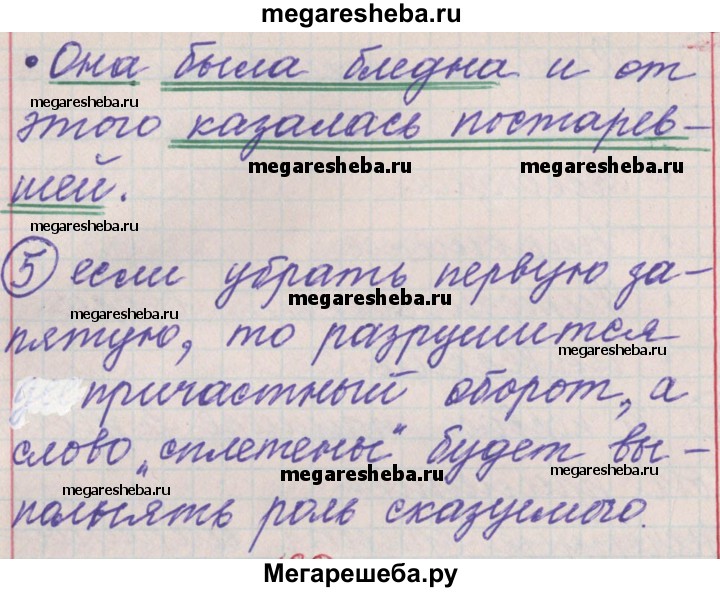 megaresheba.ru
• Она была бледна и от
megaresheba.ru
этого казалась постарев-
megaresheba.ru megaresheba.ru
шей.
megaresheba.ru
⑤ если убрать первую за-
megaresheba.ru
пятую, то разрушится
megaresheba.ru
причастный оборот, а
слово „сплетены“ будет вы-
megaresheba.ru megaresheba.ru
megaresheba.ru
полнять роль сказуемого.
Мегарешеба.ру